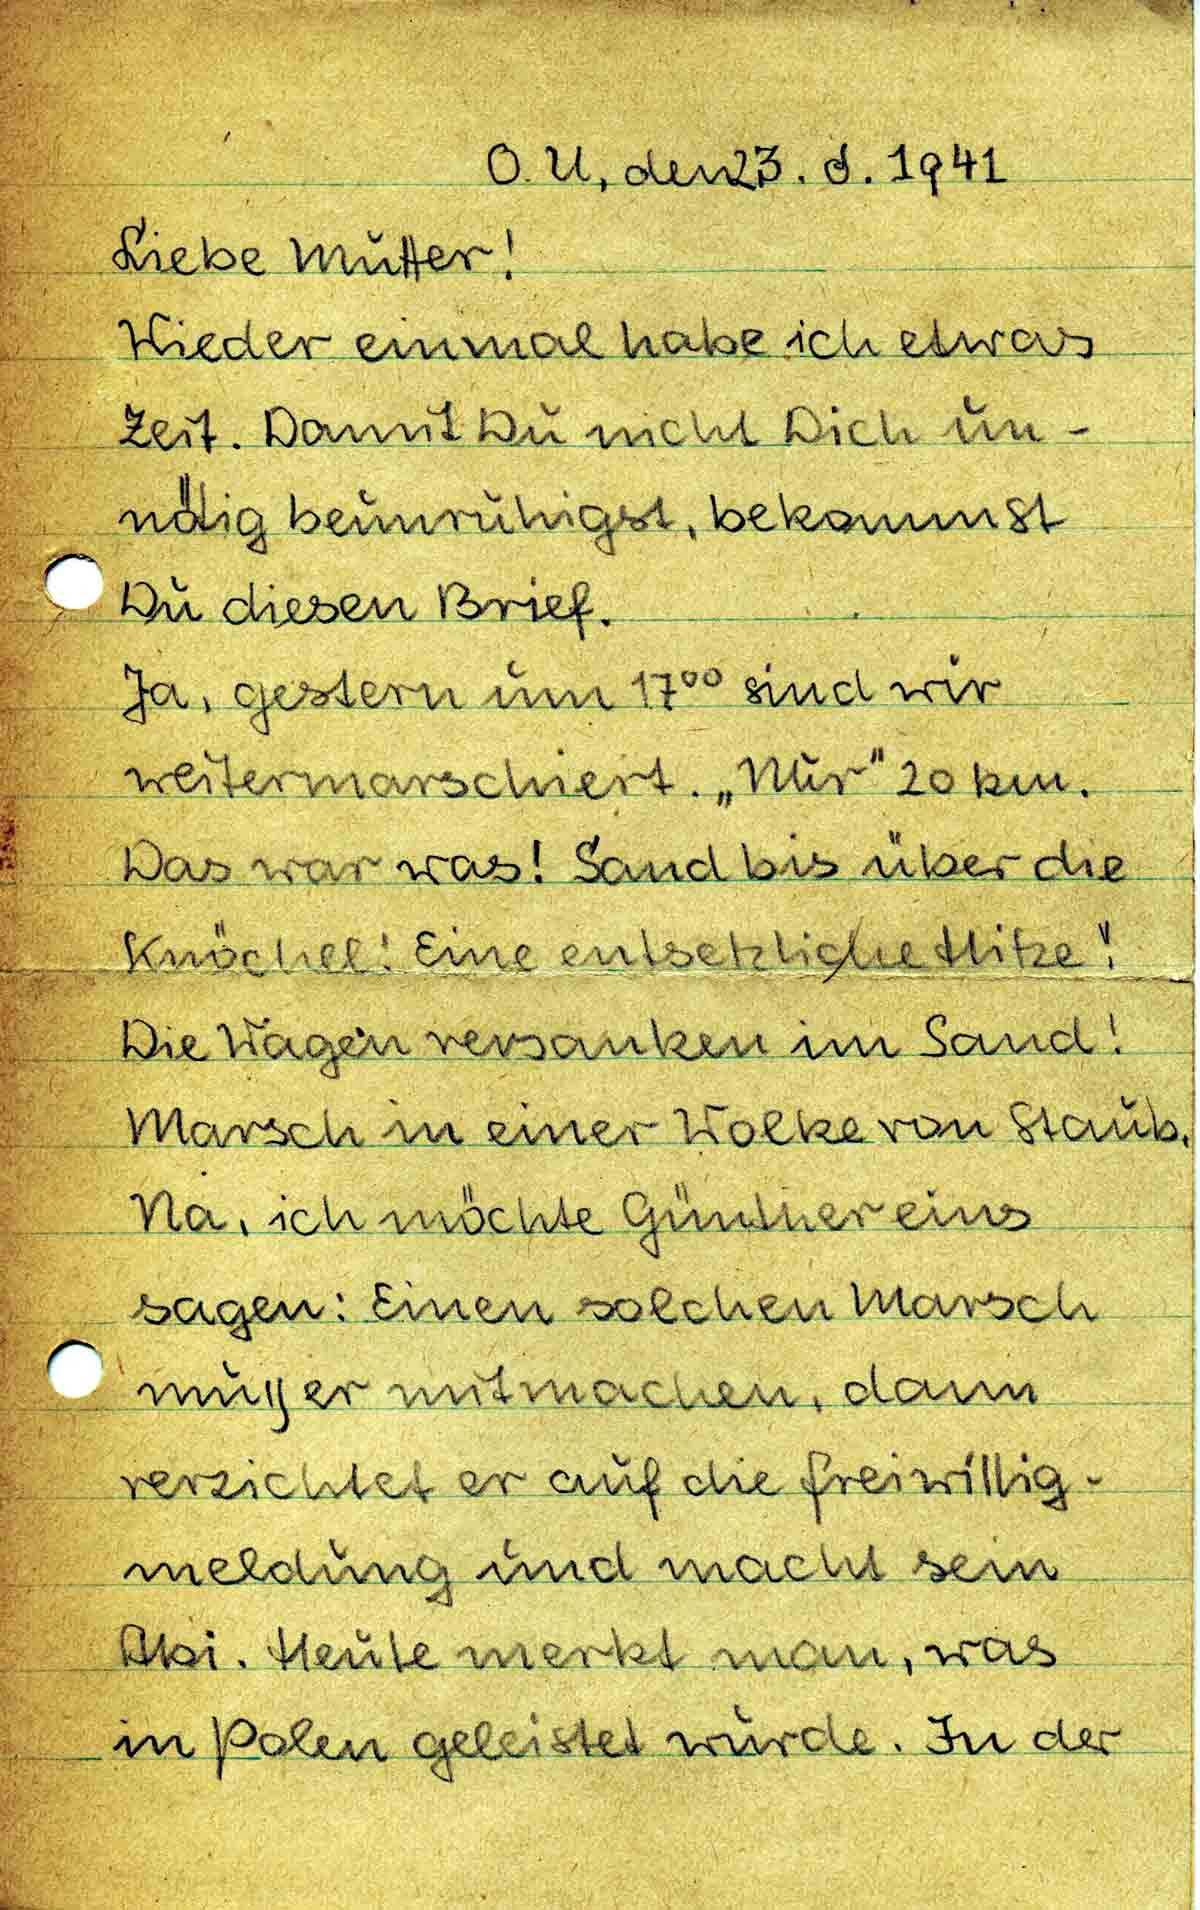 O.U, den 23. 6. 1941
Liebe Mutter!
Wieder einmal habe ich etwas
Zeit. Damit Du nicht Dich un-
nötig beunruhigst, bekommst
Du diesen Brief.
Ja, gestern um 17⁰⁰ sind wir
weitermarschiert. „Nur" 20 km.
Das war was! Sand bis über die
Knöchel! Eine entsetzliche Hitze!
Die Wagen versanken im Sand!
Marsch in einer Wolke von Staub.
Na, ich möchte Günther eins
sagen: Einen solchen Marsch
muß er mitmachen, dann
verzichtet er auf die freiwillig-
meldung und macht sein
Abi. Heute merkt man, was
in Polen geleistet wurde. In der